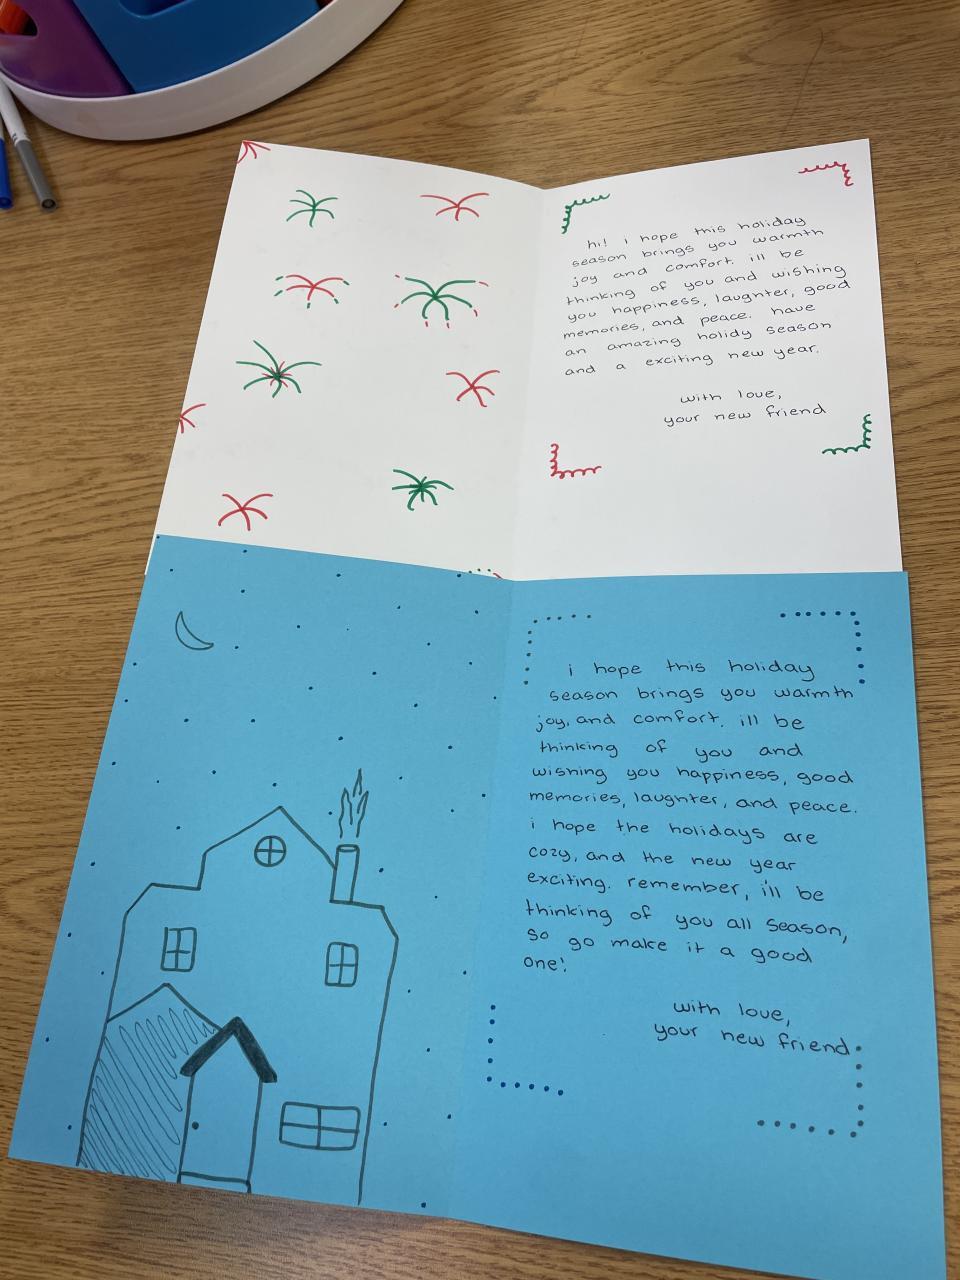 hi! i hope this holiday
season brings you warmth
joy and comfort. ill be
thinking of you and wishing
you happiness, laughter, good
memories, and peace. have
an amazing holidy season
and a exciting new year.
with love,
your new friend
i hope this holiday
season brings you warmth
joy, and comfort. ill be
thinking of you and
wishing you happiness, good
memories, laughter, and peace.
i hope the holidays are
cozy, and the new year
exciting. remember, i'll be
thinking of you all season,
so go make it a good
one!
with love,
your new friend